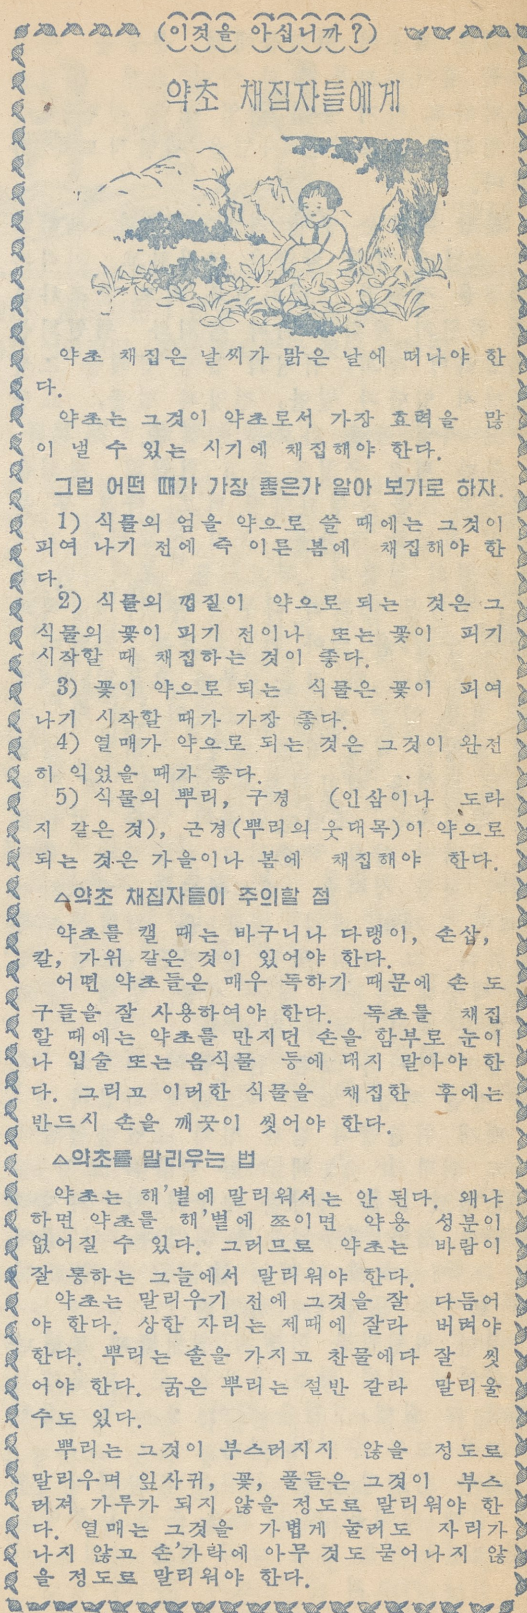 (이것을 아십니까?)
약초 채집자들에게
약초 채집은 날씨가 맑은 날에 떠나야 한
다.
약초는 그것이 약초로서 가장 효력을 많
이 낼 수 있는 시기에 채집해야 한다.
그럼 어떤 때가 가장 좋은가 알아 보기로 하자.
1) 식물의 엄을 약으로 쓸 때에는 그것이
피여 나기 전에 즉 이른 봄에 채집해야 한
다.
2) 식물의 껍질이 약으로 되는 것은 그
식물의 꽃이 피기 전이나 또는 꽃이 피기
시작할 때 채집하는 것이 좋다.
3) 꽃이 약으로 되는 식물은 꽃이 피여
나기 시작할 때가 가장 좋다.
4) 열매가 약으로 되는 것은 그것이 완전
히 익었을 때가 좋다.
5) 식물의 뿌리, 구경 (인삼이나 도라
지 같은 것), 근경(뿌리의 웃대목)이 약으로
되는 것은 가을이나 봄에 채집해야 한다.
△약초 채집자들이 주의할 점
약초를 캘 때는 바구니나 다랭이, 손삽,
칼, 가위 같은 것이 있어야 한다.
어떤 약초들은 매우 독하기 때문에 손 도
구들을 잘 사용하여야 한다. 독초를 채집
할 때에는 약초를 만지던 손을 함부로 눈이
나 입술 또는 음식물 등에 대지 말아야 한
다. 그리고 이러한 식물을 채집한 후에는
반드시 손을 깨끗이 씻어야 한다.
△약초를 말리우는 법
약초는 해'볕에 말리워서는 안 된다. 왜냐
하면 약초를 해'볕에 쪼이면 약용 성분이
없어질 수 있다. 그러므로 약초는 바람이
잘 통하는 그늘에서 말리워야 한다.
약초는 말리우기 전에 그것을 잘 다듬어
야 한다. 상한 자리는 제때에 잘라 버려야
한다. 뿌리는 솔을 가지고 찬물에다 잘 씻
어야 한다. 굵은 뿌리는 절반 갈라 말리울
수도 있다.
뿌리는 그것이 부스러지지 않을 정도로
말리우며 잎사귀, 꽃, 풀들은 그것이 부스
러져 가루가 되지 않을 정도로 말리워야 한
다. 열매는 그것을 가볍게 눌러도 자리가
나지 않고 손'가락에 아무 것도 묻어나지 않
을 정도로 말리워야 한다.